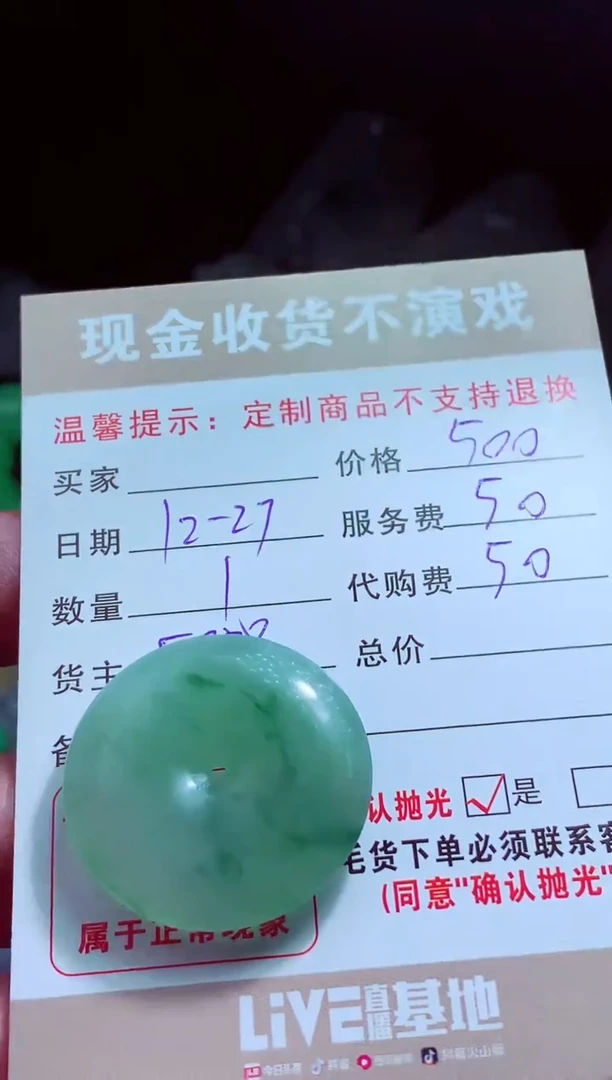 现金收货不演戏
温馨提示：定制商品不支持退换
买家 价格 500
日期 12-27 服务费 50
数量 1 代购费 50
货主 总价
认抛光 ☑是
毛货下单必须联系客
(同意"确认抛光"
属于正常现象
LiVE直播基地
今日头条